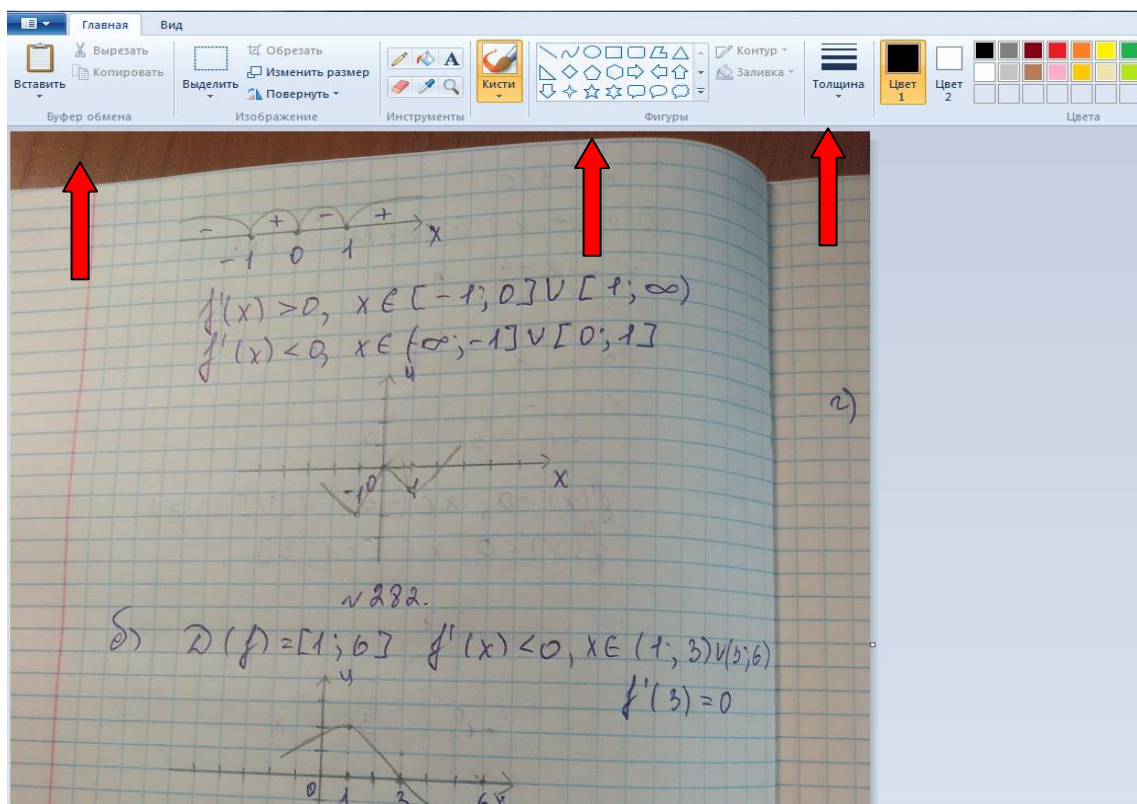 Главная Вид
Вставить
Вырезать
Копировать
Буфер обмена
Выделить
Обрезать
Изменить размер
Повернуть
Изображение
A
Инструменты
Кисти
Контур
Заливка
Фигуры
Толщина
Цвет 1
Цвет 2
Цвета
- + - +
-1 0 1 x
f'(x) >0, x∈[-1; 0]∪[1; ∞)
f'(x) <0, x∈(-∞; -1]∪[0; 1]
y
г)
-1 0 1 x
№282.
б) D(f)=[1; 6] f'(x) <0, x∈(1; 3)∪(3; 6)
f'(3)=0
y
0 1 3 6 x